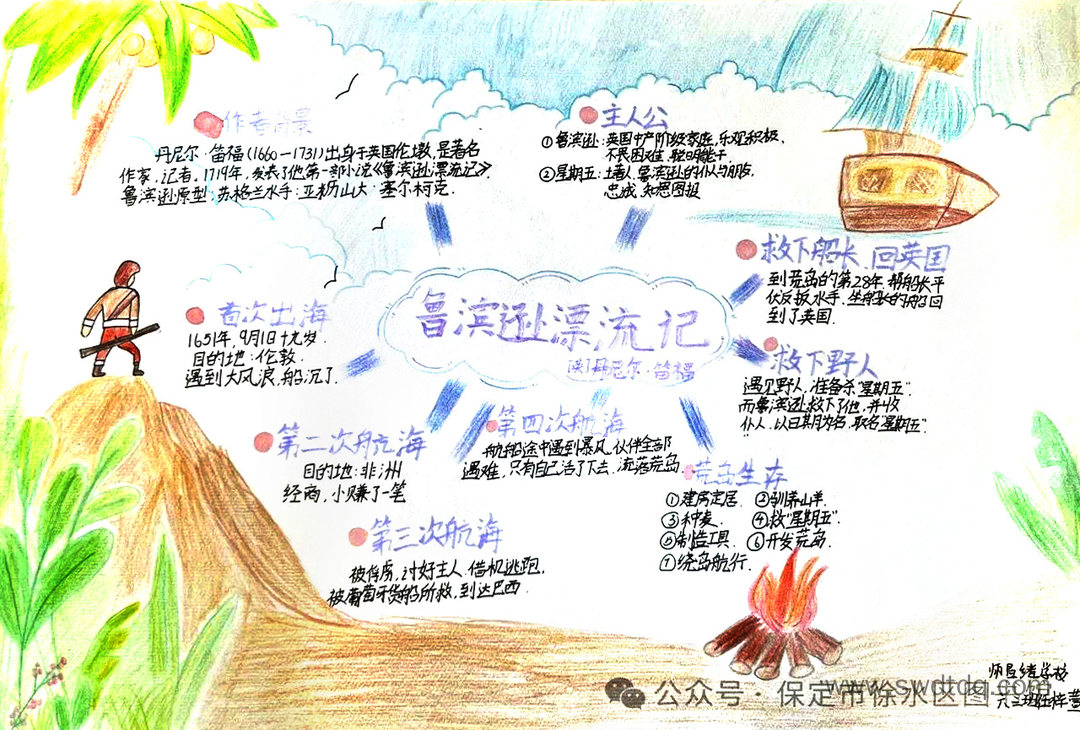 作者背景
丹尼尔·笛福(1660—1731)出身于英国伦敦,是著名
作家,记者,1719年,发表了他第一部小说《鲁滨逊漂流记》.
鲁滨逊原型:苏格兰水手:亚历山大·塞尔柯克.
主人公
①鲁滨逊:英国中产阶级家庭,乐观积极,
不畏困难,聪明能干.
②星期五:土著人,鲁滨逊的仆人与朋友,
忠诚,知恩图报
救下船长、回英国
到荒岛的第28年,帮船长平
伏反叛水手.坐船长的船回
到了英国.
鲁滨逊漂流记
[英]丹尼尔·笛福
首次出海
1651年,9月1日十九岁.
目的地:伦敦.
遇到大风浪,船沉了.
救下野人
遇见野人,准备杀"星期五"
而鲁滨逊救下了他,并收
仆人.以日期为名,取名"星期五".
第二次航海
目的地:非洲
经商,小赚了一笔
第四次航海
航船途中遇到暴风,伙伴全部
遇难,只有自己活了下去,流落荒岛.
荒岛生存
①建房定居. ②驯养山羊.
③种麦. ④救"星期五".
⑤制造工具. ⑥开发荒岛.
⑦绕岛航行.
第三次航海
被俘虏,讨好主人,借机逃跑,
被葡萄牙货船所救,到达巴西.
学校
公众号·保定市徐水区图
www.swdtdq.com